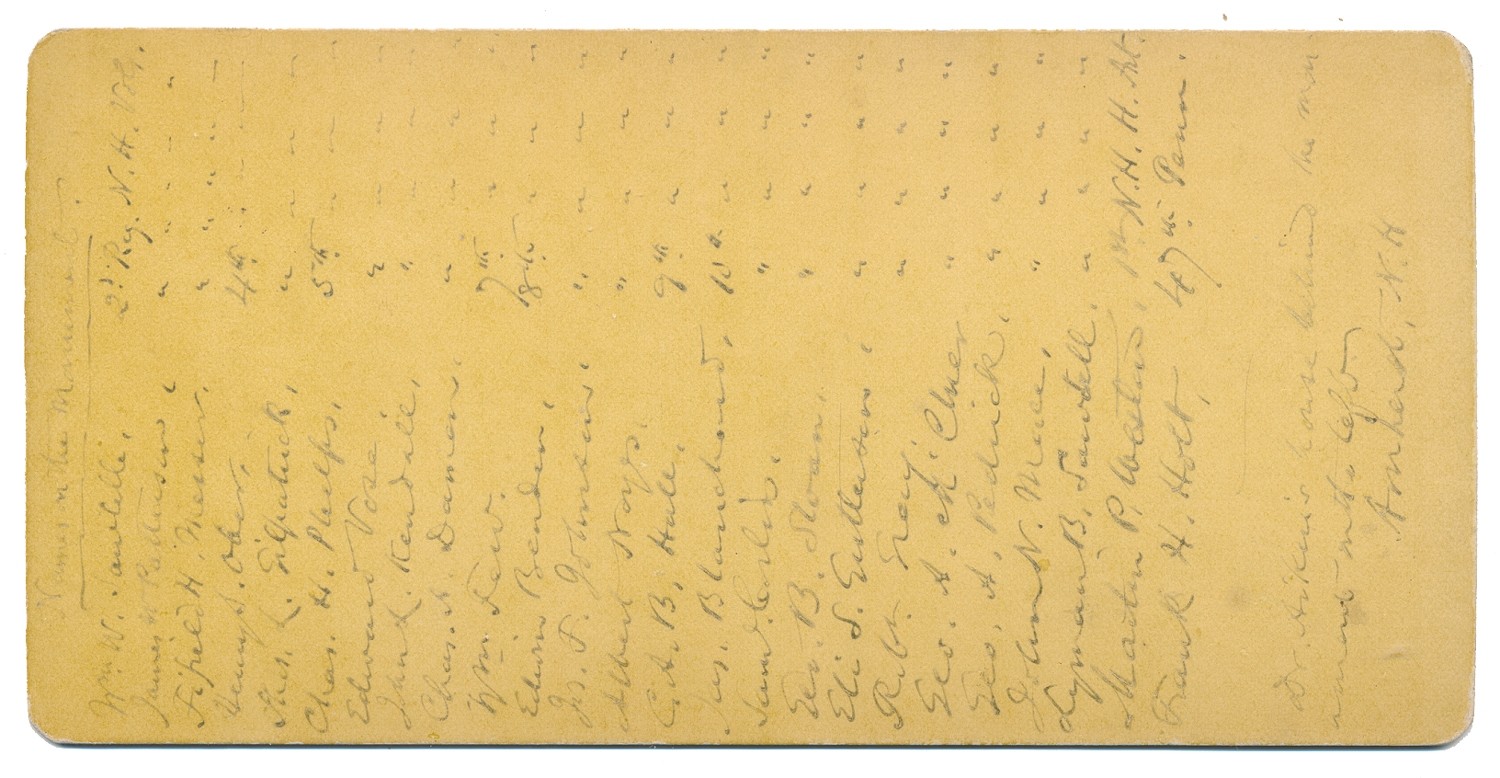 Names on the Monument.
Wm. W. Sawtelle. 2d Reg. N. H. Vol.
James Pattison. " " " "
Fifield H. Messer. " " " "
Henry S. Ober. 4th " " "
L. Gilpatrick. " " " "
Chas. H. Phelps. 5th " " "
Edward Vose " " " "
John L. Kendall. " " " "
Chas. A. Damon. " " " "
Wm. Few. 7th " " "
Edwin Benden. 8th " " "
Js. F. Johnson. " " " "
Albert Noyes. " " " "
C. A. B. Hall. 9th " " "
Jas. Blanchard. 10th " " "
Saml. Corlis. " " " "
Geo. B. Sloan. " " " "
Eli S. Eustason. " " " "
Robt. Gray. " " " "
Geo. A. McCluer " " " "
Geo. A. Pedrick. " " " "
John N. Mace. " " " "
Lyman B. Sawtell. " " " "
Martin P. Weston. 1st N. H. H. Art.
Frank H. Holt. 47th Penn.
Dr. Aikins house behind the mon
ument on the left
Amherst, N. H